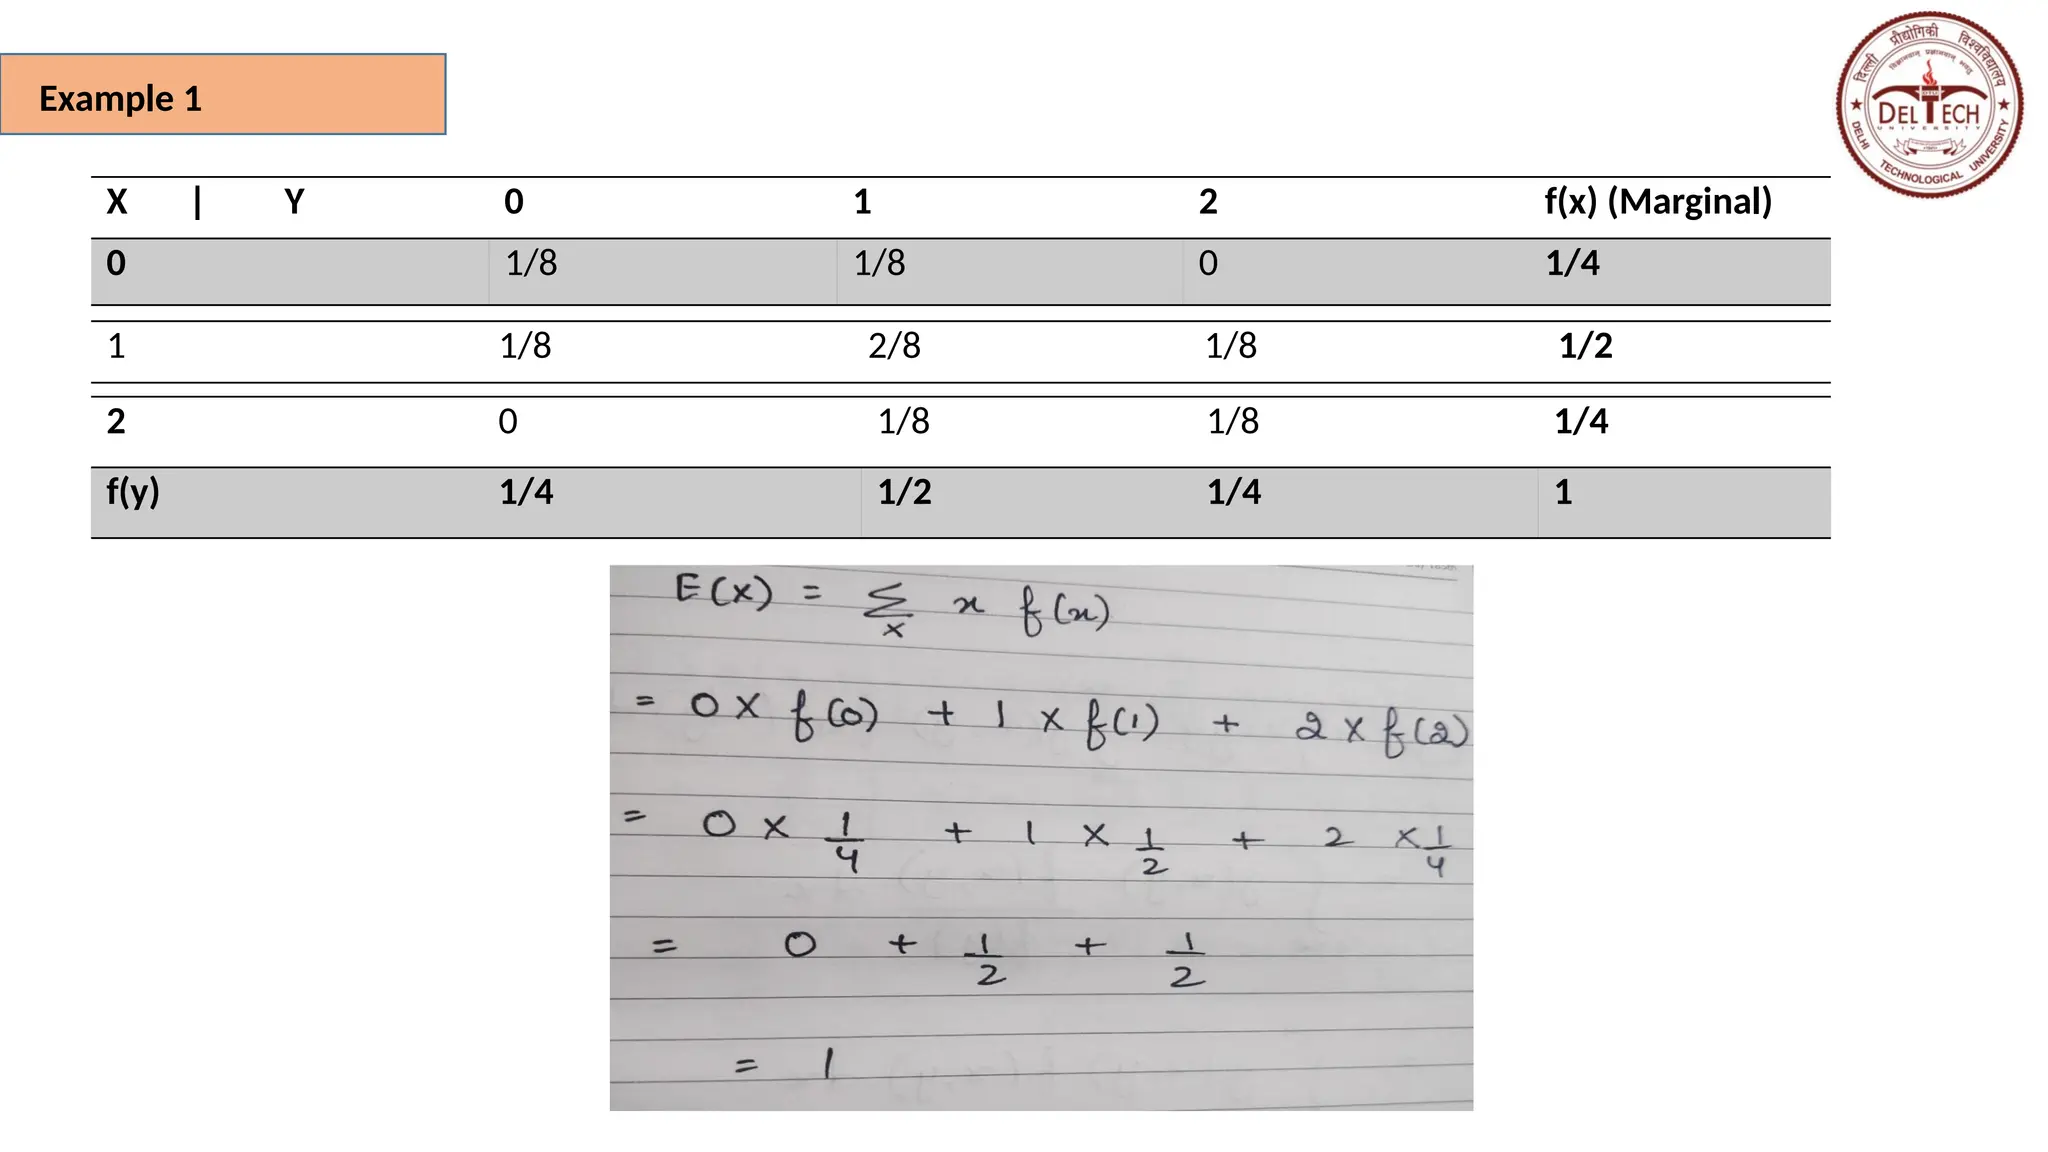 Example 1
दिल्ली प्रौद्योगिकी विश्वविद्यालय
DELTECH
UNIVERSITY
DELHI TECHNOLOGICAL UNIVERSITY
X | Y 0 1 2 f(x) (Marginal)
0 1/8 1/8 0 1/4
1 1/8 2/8 1/8 1/2
2 0 1/8 1/8 1/4
f(y) 1/4 1/2 1/4 1
E(x) = Σ_x x f(x)
= 0 × f(0) + 1 × f(1) + 2 × f(2)
= 0 × 1/4 + 1 × 1/2 + 2 × 1/4
= 0 + 1/2 + 1/2
= 1